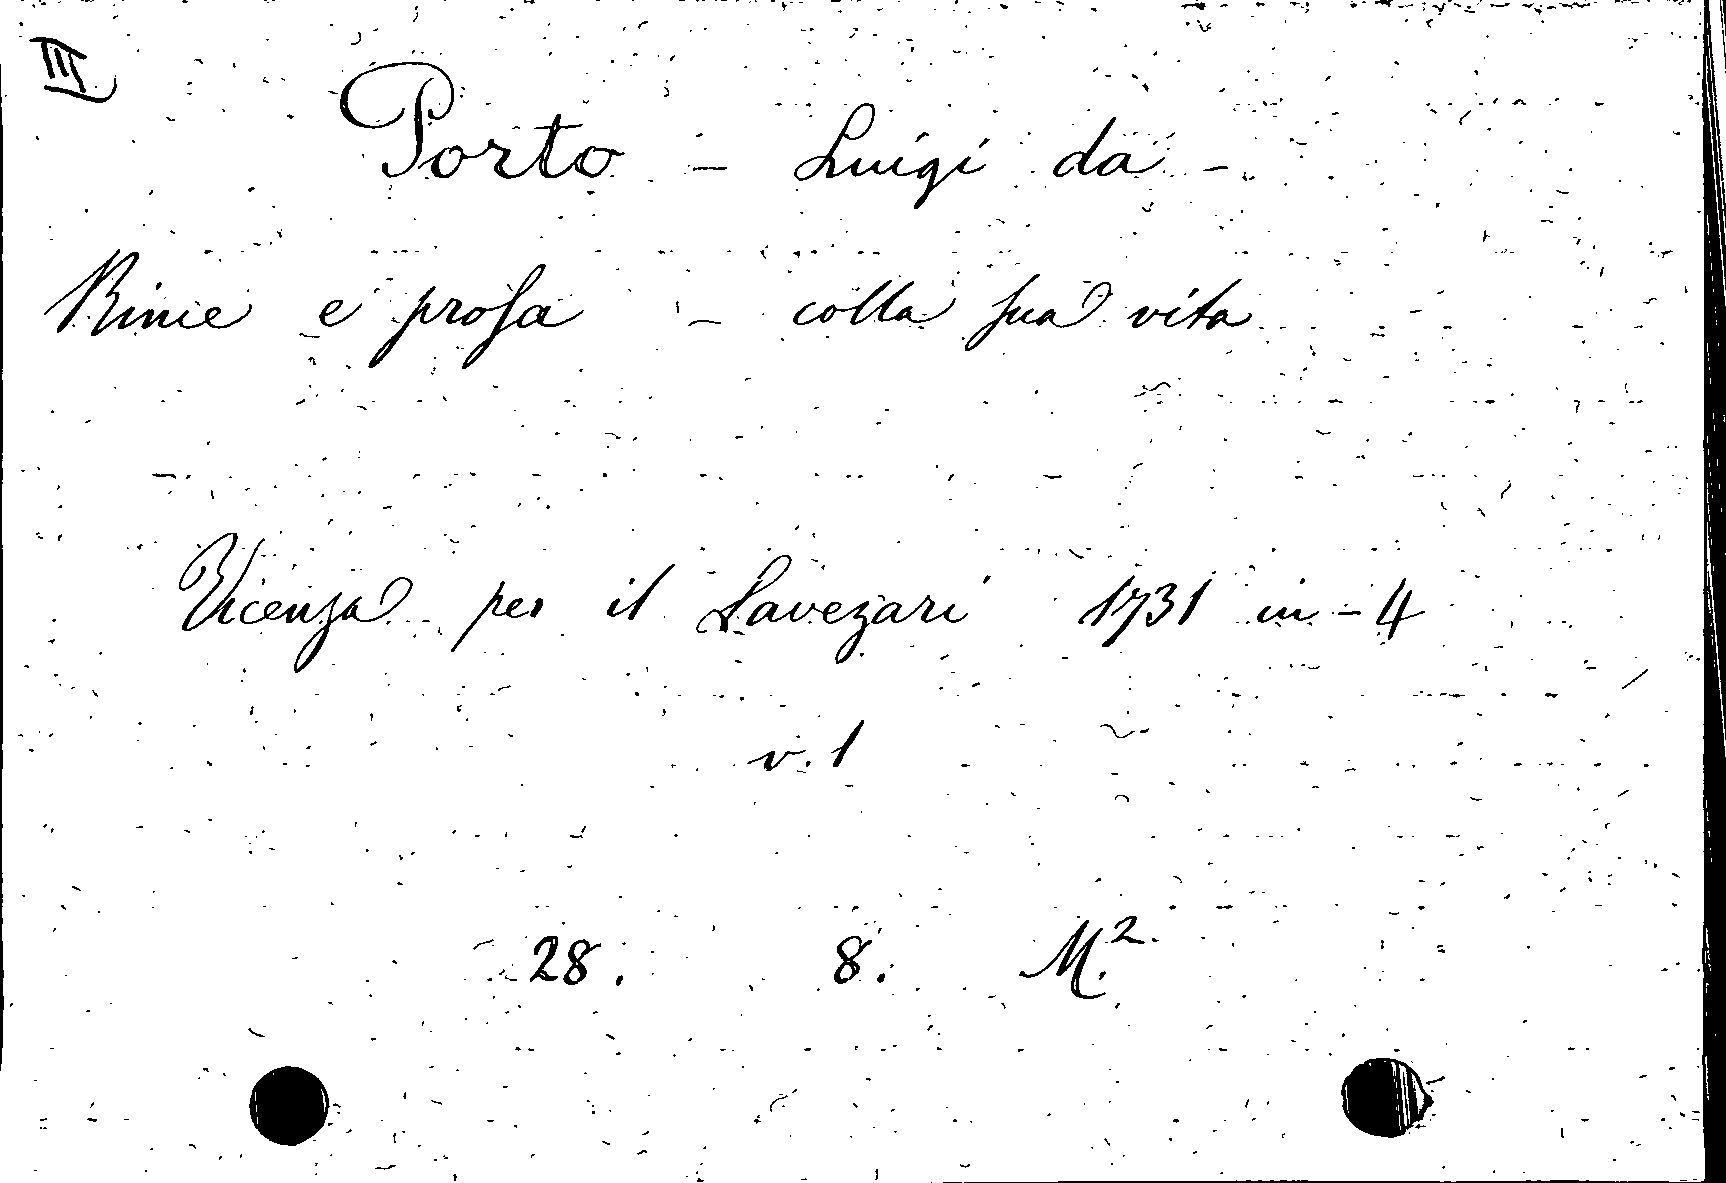 III
Porto - Luigi da -
Rime e prosa - colla sua vita
Vicenza per il Lavezari 1731 in-4
v. 1
28. 8. M.2.